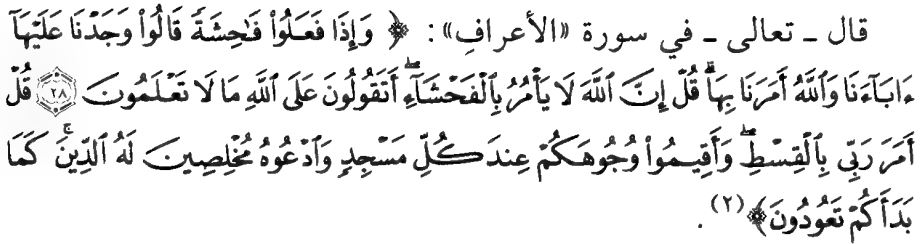 قال ـ تعالى ـ في سورة «الأعراف» : ﴿ وَإِذَا فَعَلُوا۟ فَـٰحِشَةً قَالُوا۟ وَجَدْنَا عَلَيْهَآ
ءَابَآءَنَا وَٱللَّهُ أَمَرَنَا بِهَاۗ قُلْ إِنَّ ٱللَّهَ لَا يَأْمُرُ بِٱلْفَحْشَآءِۖ أَتَقُولُونَ عَلَى ٱللَّهِ مَا لَا تَعْلَمُونَ ۝٢٨ قُلْ
أَمَرَ رَبِّى بِٱلْقِسْطِۖ وَأَقِيمُوا۟ وُجُوهَكُمْ عِندَ كُلِّ مَسْجِدٍ وَٱدْعُوهُ مُخْلِصِينَ لَهُ ٱلدِّينَۚ كَمَا
بَدَأَكُمْ تَعُودُونَ﴾ (٢) .